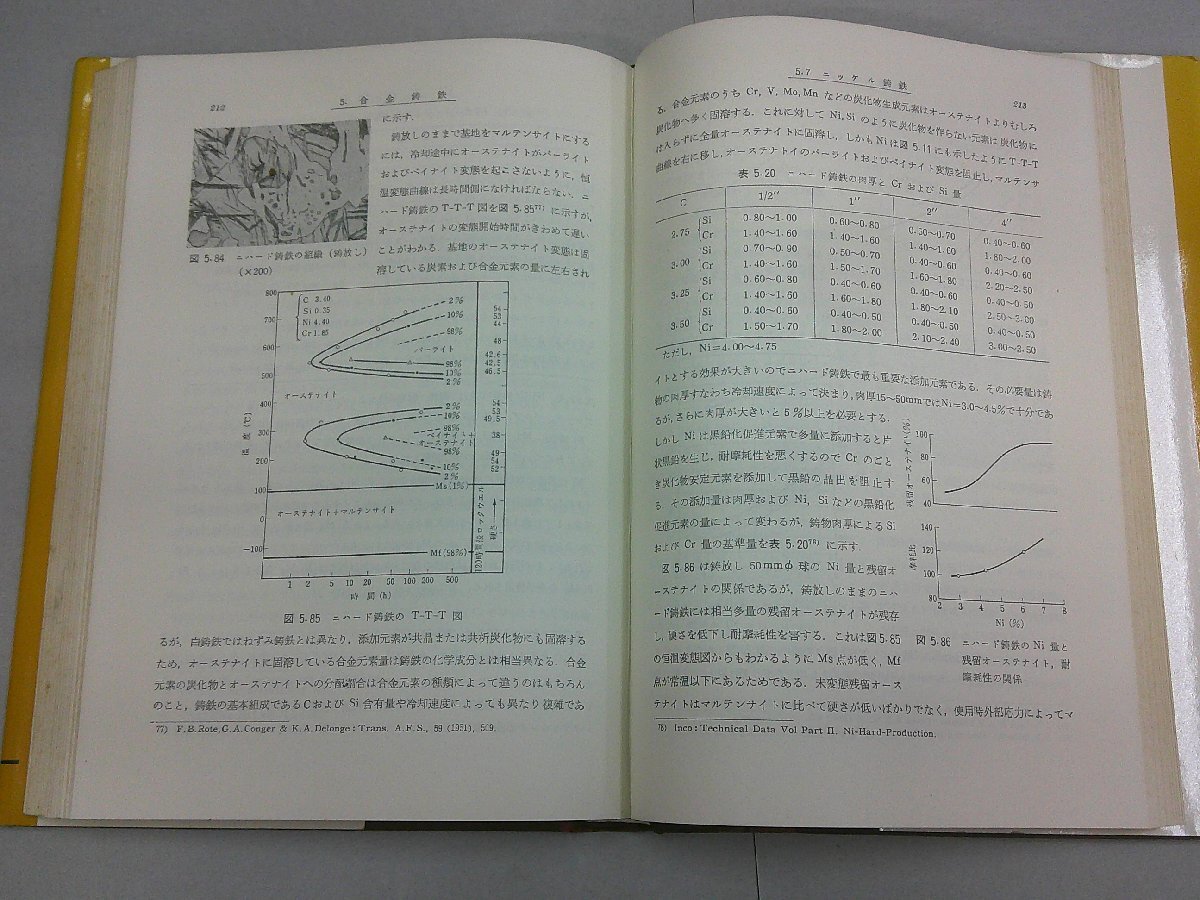 212
5. 合金鋳鉄
に示す.
鋳放しのままで基地をマルテンサイトにする
には, 冷却途中にオーステナイトがパーライト
およびベイナイト変態を起こさないように, 恒
温変態曲線は長時間側になければならない. ニ
ハード鋳鉄の T-T-T 図を図 5·85⁷⁷⁾ に示すが,
オーステナイトの変態開始時間がきわめて遅い
ことがわかる. 基地のオーステナイト変態は固
溶している炭素および合金元素の量に左右され
図 5·84 ニハード鋳鉄の組織 (鋳放し)
(×200)
C 3.40
Si 0.35
Ni 4.40
Cr 1.85
800
700
600
500
400
300
200
100
0
-100
温度 (℃)
2%
10%
98%
パーライト
98%
10%
2%
オーステナイト
2%
10%
98%
ベイナイト+
オーステナイト
98%
10%
2%
Ms (1%)
オーステナイト+マルテンサイト
Mf (58%)
54
53
44
48
42.6
42.5
46.5
54
53
49.5
38
49
54
52
120時間後ロックウエル
硬さ
1 2 5 10 20 50 100 200 500
時間 (h)
図 5·85 ニハード鋳鉄の T-T-T 図
るが, 白鋳鉄ではねずみ鋳鉄とは異なり, 添加元素が共晶または共析炭化物にも固溶する
ため, オーステナイトに固溶している合金元素量は鋳鉄の化学成分とは相当異なる. 合金
元素の炭化物とオーステナイトへの分配割合は合金元素の種類によって違うのはもちろん
のこと, 鋳鉄の基本組成であるCおよび Si 含有量や冷却速度によっても異なり複雑であ
77) F. B. Rote, G. A. Conger & K. A. Delonge : Trans. A. F. S., 59 (1951), 509.
5.7 ニッケル鋳鉄
213
る. 合金元素のうち Cr, V, Mo, Mn などの炭化物生成元素はオーステナイトよりむしろ
炭化物へ多く固溶する. これに対して Ni, Si のように炭化物を作らない元素は炭化物に
は入らずに全量オーステナイトに固溶し, しかも Ni は図 5.11 にも示したように T-T-T
曲線を右に移し, オーステナトイのパーライトおよびベイナイト変態を阻止し, マルテンサ
表 5·20 ニハード鋳鉄の肉厚と Cr および Si 量
C 1/2″ 1″ 2″ 4″
2.75 Si 0.80~1.00 0.60~0.80 0.50~0.70 0.40~0.60
Cr 1.40~1.60 1.40~1.60 1.40~1.60 1.80~2.00
3.00 Si 0.70~0.90 0.50~0.70 0.40~0.60 0.40~0.60
Cr 1.40~1.60 1.50~1.70 1.60~1.80 2.20~2.50
3.25 Si 0.60~0.80 0.40~0.60 0.40~0.60 0.40~0.50
Cr 1.40~1.60 1.60~1.80 1.80~2.10 2.50~3.00
3.50 Si 0.40~0.60 0.40~0.50 0.40~0.50 0.40~0.50
Cr 1.50~1.70 1.80~2.00 2.10~2.40 3.00~3.50
ただし, Ni=4.00~4.75
イトとする効果が大きいのでニハード鋳鉄で最も重要な添加元素である. その必要量は鋳
物の肉厚すなわち冷却速度によって決まり, 肉厚15~50mmではNi=3.0~4.5%で十分であ
るが, さらに肉厚が大きいと 5 %以上を必要とする.
しかし Ni は黒鉛化促進元素で多量に添加すると片
状黒鉛を生じ, 耐摩耗性を悪くするので Cr のごと
き炭化物安定元素を添加して黒鉛の晶出を阻止す
る. その添加量は肉厚および Ni, Si などの黒鉛化
促進元素の量によって変わるが, 鋳物肉厚による Si
および Cr 量の基準量を表 5·20⁷⁸⁾ に示す.
図 5·86 は鋳放し 50mmφ 球の Ni 量と残留オ
ーステナイトの関係であるが, 鋳放しのままのニハ
ード鋳鉄には相当多量の残留オーステナイトが残存
し, 硬さを低下し耐摩耗性を害する. これは図 5·85
の恒温変態図からもわかるように Ms 点が低く, Mf
点が常温以下にあるためである. 未変態残留オース
テナイトはマルテンナイトに比べて硬さが低いばかりでなく, 使用時外部応力によってマ
残留オーステナイト(%)
100
80
60
40
摩耗比
140
120
100
80
2 3 4 5 6 7 8
Ni (%)
図 5·86 ニハード鋳鉄の Ni 量と
残留オーステナイト, 耐
摩耗性の関係
78) Inco : Technical Data Vol Part II. Ni-Hard-Production.